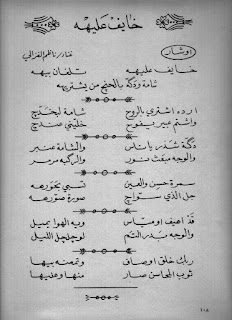 خايف عليهه
اوشار
غناء: ناظم الغزالي
خايف عليهه تلفان بيهه
شامة ودكّة بالحنچ من يشتريهه
اردد اشتري بالروح شامة ليخدّچ
واشتم عبير يفوح خليني عندچ
دكّة شذر ياناس والشامة عنبر
والوجه مبعث نور والرگبه مرمر
سمرة حسن والعين تسبي بحورهه
جلّ الذي سوّاچ صورة صورهه
قدّ اهيف اوميّاس ويه الهوا يميل
والوجه بدر التم لوچلچل الليل
ربّك خلق اوصاف وتمعنه بيهه
ثوب المحاسن صار منها وعليها
١٠٨